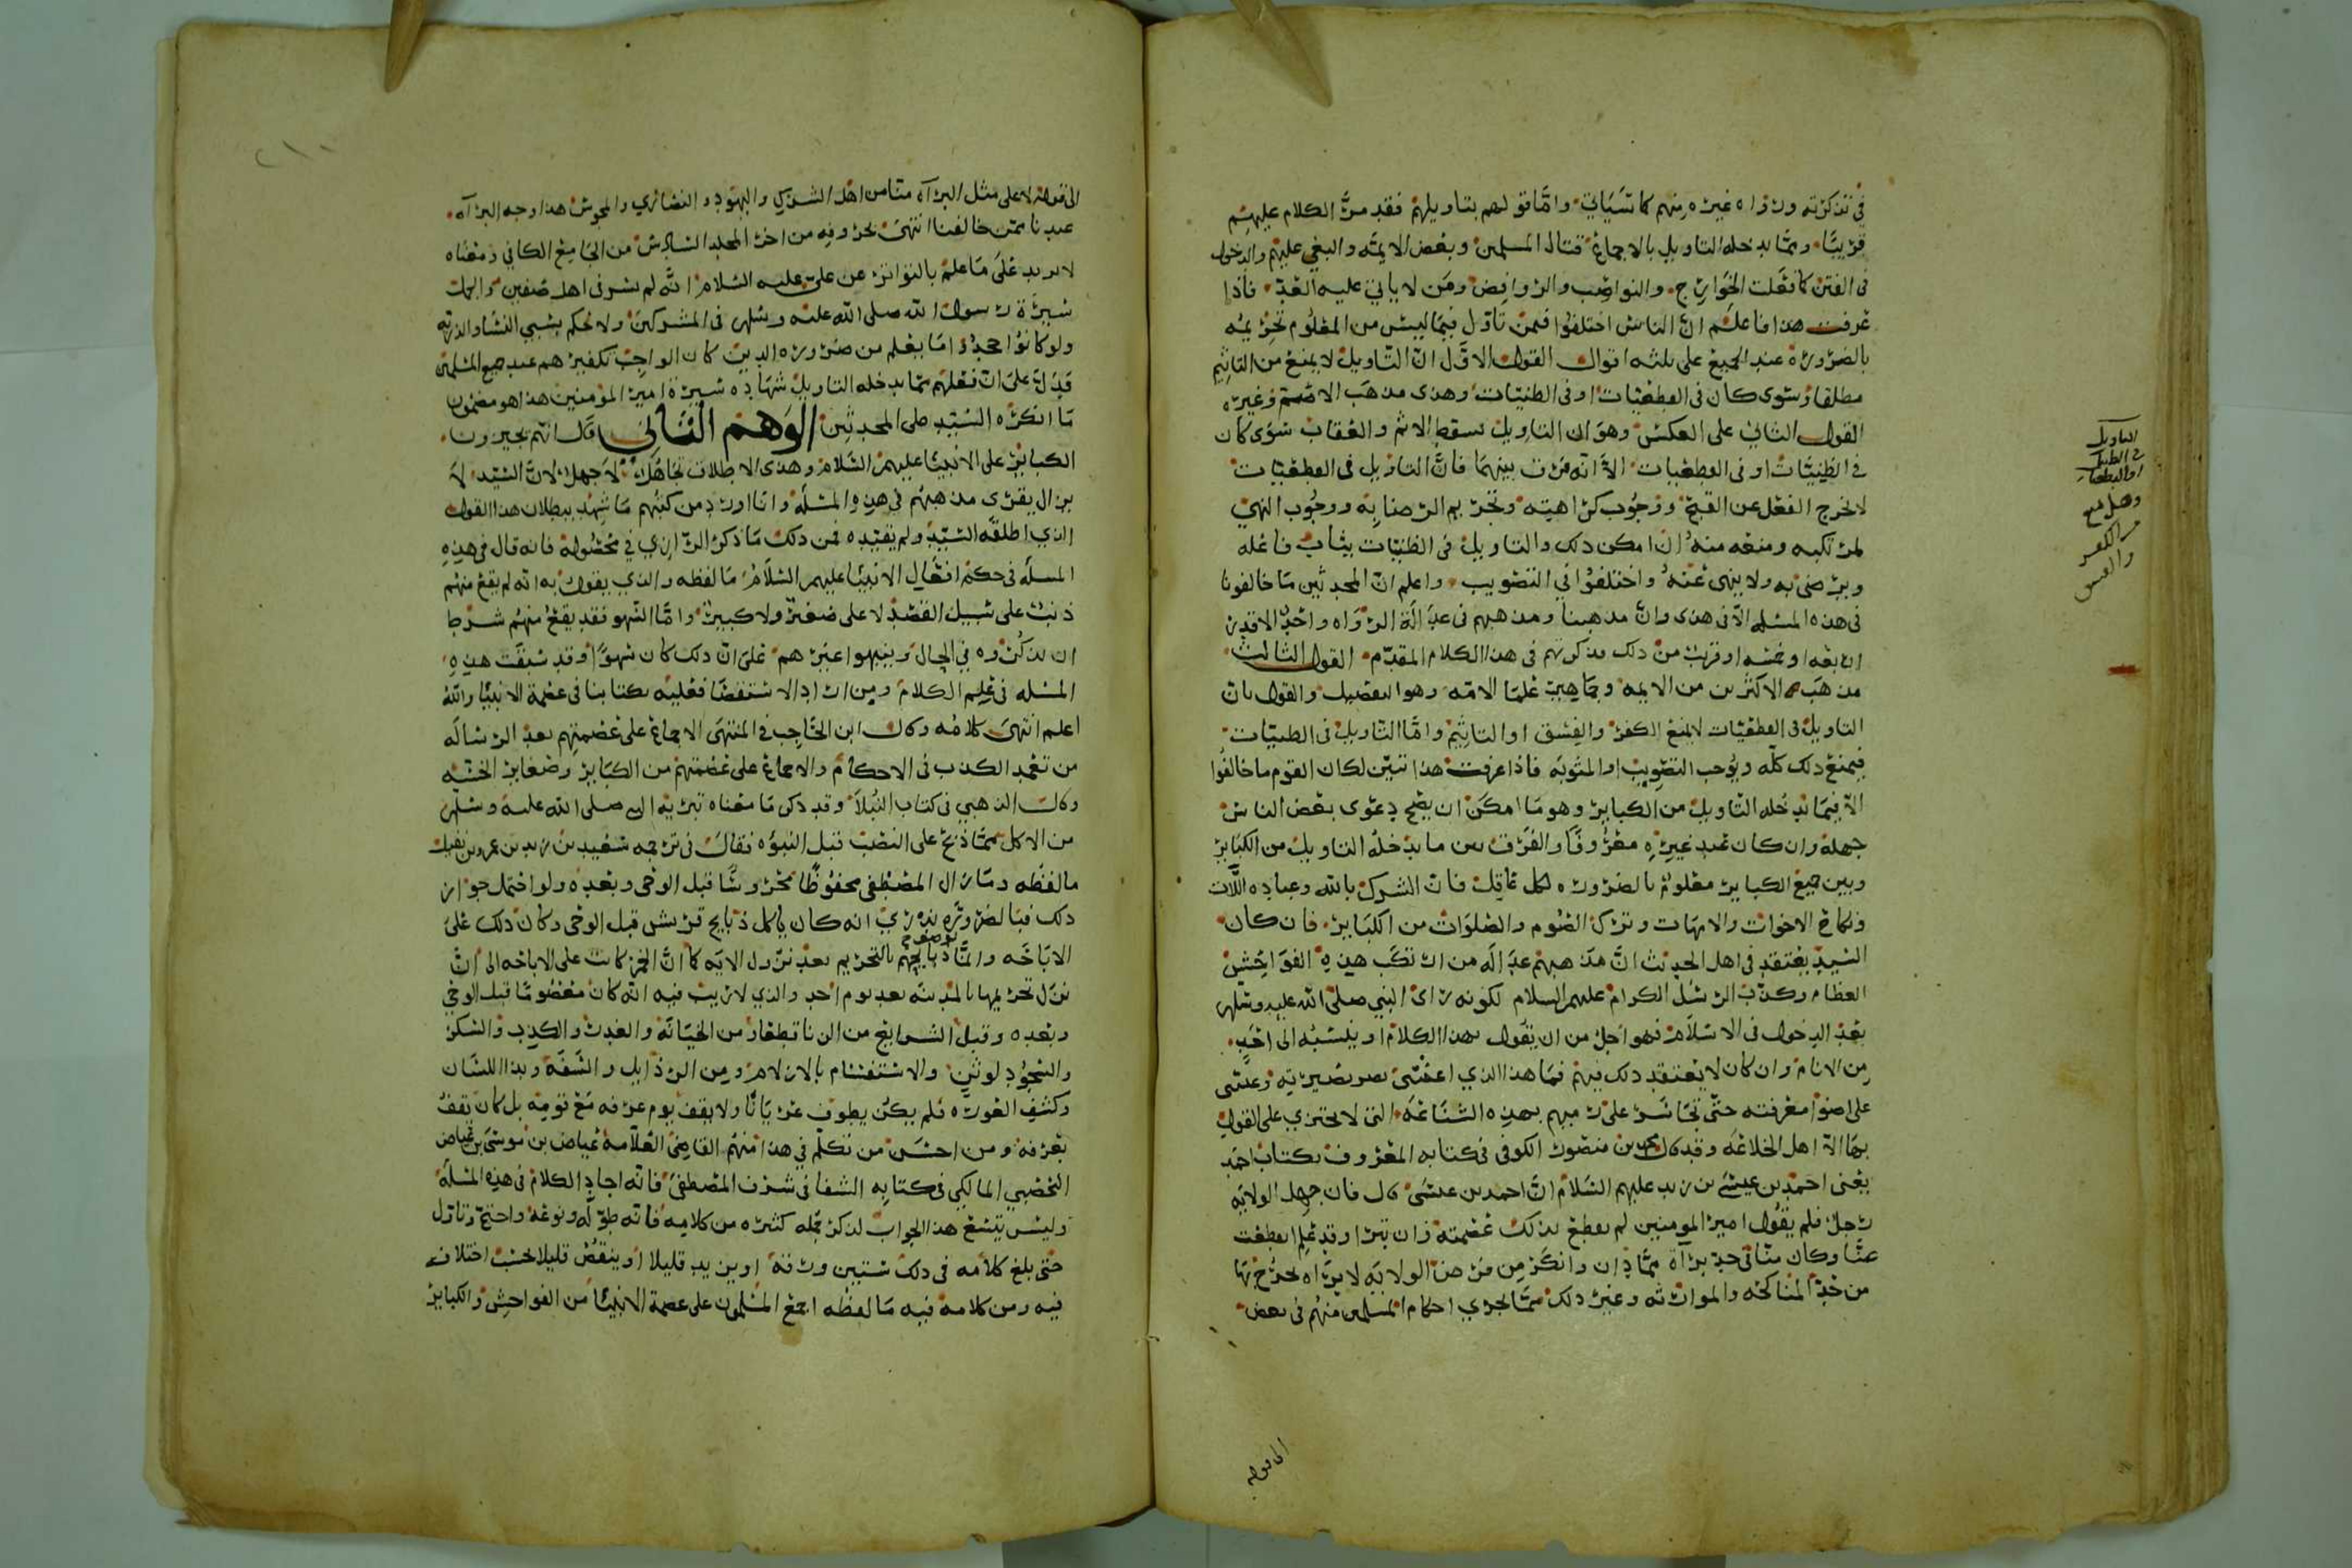 في تذكرته ورواه غيره منهم كما سياتي واما قولهم بتاويلهم فقد مر الكلام عليهم
قريبا ومما يدخله التاويل بالاجماع قتال المسلمين وبعض الايمه والبغي عليهم والدخول
في الفتن كما فعلت الخوارج والنواصب والروافض ومن لا ياتي عليه العد فاذا
عرفت هذا فاعلم ان الناس اختلفوا فيمن تاول فيما ليس من المعلوم تحريمه
بالضروره عند الجميع على ثلثه اقوال القول الاول ان التاويل لا يمنع من التاثيم
مطلقا وسوى كان في القطعيات او في الظنيات وهذى مذهب الاصم وغيره
القول الثاني على العكس وهو ان التاويل يسقط الاثم والعقاب سوى كان
في الظنيات او في القطعيات الا انه فرق بينهما فان التاويل في القطعيات
لا يخرج الفعل عن القبح ووجوب كراهيته وتحريم الرضا به ووجوب النهي
لمرتكبه ومنعه منه ان امكن ذلك والتاويل في الظنيات يثاب فاعله
ويرضى به ولا ينهى عنه واختلفوا في التصويب واعلم ان المحدثين ما خالفونا
في هذه المسله الا في هذى وان مذهبنا ومذهبهم في عدالة الرواه واحد الا قدر
اربعه او خمسه او قريب من ذلك قد ذكرتهم في هذا الكلام المقدم القول الثالث
مذهب الاكثرين من الايمه وجماهير علما الامه وهو التفصيل والقول بان
التاويل في القطعيات لا يمنع الكفر والفسق او التاثيم واما التاويل في الظنيات
فيمنع ذلك كله ويوجب التصويب او المثوبه فاذا عرفت هذا تبين لك ان القوم ما خالفوا
الا فيما يدخله التاويل من الكبائر وهو ما امكن ان يصح دعوى بعض الناس
جهله وان كان عند غيره معروفا والفرق بين ما يدخله التاويل من الكبائر
وبين جميع الكبائر معلوم بالضروره لكل عاقل فان الشرك بالله وعباده اللات
ونكاح الاخوات والامهات وترك الصوم والصلوات من الكبائر فان كان
السيد يعتقد في اهل الحديث ان مذهبهم عدالة من ارتكب هذه الفواحش
العظام وكذب الرسل الكرام عليهم السلام لكونه راى النبي صلى الله عليه وسلم
بعد الدخول في الاسلام فهو اجل من ان يقول بهذا الكلام او ينسبه الى احد
من الانام وان كان لا يعتقد ذلك فيهم فما هذا الذي اعشى بصر بصيرته وغشى
على اضوا معرفته حتى تجاسر على رميهم بهذه الشناعه التي لا يجترى على القول
بها الا اهل الخلاعه وقد قال محمد بن منصور الكوفي في كتابه المعروف بكتاب احمد
يعني احمد بن عيسى بن زيد عليهم السلام ان احمد بن عيسى قال فان جهل الولايه
رجل فلم يقول امير المومنين لم يقطع بذلك عصمته وان تبرا وقد علم انقطعت
عنا وكان منا في حد براة مما دان وانكر من فرض الولايه لا براه يخرج بها
من حد المناكحه والموارثه وغير ذلك مما يجري احكام المسلمين منهم في بعض
الى قوله
التاويل
في الظنيات
او القطعيات
وهل يمنع
من الكفر
والفسق
الى قوله لا على مثل البراة منا من اهل الشرك واليهود والنصارى والمجوس هذا وجه البراة
عندنا ممن خالفنا انتهى بحروفه من اخر المجلد السادس من الجامع الكافي ومعناه
لا يزيد على ما علم بالتواتر عن علي عليه السلام انه لم يسر في اهل صفين والجمل
سيرة رسول الله صلى الله عليه وسلم في المشركين ولا حكم بسبي النسا والذريه
ولو كانوا جحدوا ما يعلم من ضروره الدين كان الواجب تكفيرهم عند جميع المسلمين
فدل على ان فعلهم مما يدخله التاويل شهاده سيرة امير المومنين هذا هو مضمون
ما انكره السيد على المحدثين الوهم الثاني قال انهم يجيزون
الكبائر على الانبيا عليهم السلام وهذى الاطلاق تجاهل لا جهل لان السيد لم
يزال يقرى مذهبهم في هذه المسله وانا اورد من كتبهم ما يشهد ببطلان هذا القول
الذي اطلقه السيد ولم يقيده فمن ذلك ما ذكر الرازي في محصوله فانه قال في هذه
المسله في حكم افعال الانبيا عليهم السلام ما لفظه والذي يقول به انه لم يقع منهم
ذنب على سبيل القصد لا على صغير ولا كبير واما السهو فقد يقع منهم شرط
ان يذكروه في الحال وينبهوا غيرهم على ان ذلك كان سهوا وقد سبقت هذه
المسله في علم الكلام ومن اراد الاستقصا فعليه بكتابنا في عصمة الانبيا والله
اعلم انتهى كلامه وقال ابن الحاجب في المنتهى الاجماع على عصمتهم بعد الرساله
من تعمد الكذب في الاحكام والاجماع على عصمتهم من الكبائر وصغاير الخسه
وقال الذهبي في كتاب النبلا وقد ذكر ما معناه تبريه النبي صلى الله عليه وسلم
من الاكل مما ذبح على النصب قبل النبوه فقال في ترجمه سعيد بن زيد بن عمرو بن نفيل
ما لفظه وما زال المصطفى محفوظا محروسا قبل الوحي وبعده ولو احتمل جواز
ذلك فبالضروره ندري انه كان ياكل ذبايح قريش قبل الوحي وكان ذلك على
الاباحه وانما توصف ذبايحهم بالتحريم بعد نزول الايه كما ان الخمر كانت على الاباحه الى ان
نزل تحريمها بالمدينه بعد يوم احد والذي لا ريب فيه انه كان معصوما قبل الوحي
وبعده وقبل الشرايع من الزنا قطعا ومن الخيانه والغدر والكذب والسكر
والسجود لوثن والاستقسام بالازلام ومن الرذايل والسفه وبذا اللسان
وكشف العوره فلم يكن يطوف عريانا ولا يقف يوم عرفه مع قومه بل كان يقف
بعرفه ومن احسن من تكلم في هذا منهم القاضي العلامه عياض بن موسى بن عياض
اليحصبي المالكي في كتابه الشفا في شرف المصطفى فانه اجاد الكلام في هذه المسله
وليس يتسع هذا الجواب لذكر جمله كثيره من كلامه فانه طوله ونوعه واحتج وتاول
حتى بلغ كلامه في ذلك ستين ورقه او يزيد قليلا او ينقص قليلا بحسب اختلاف
فيه ومن كلامه فيه ما لفظه اجمع المسلمون على عصمة الانبيا من الفواحش والكبائر